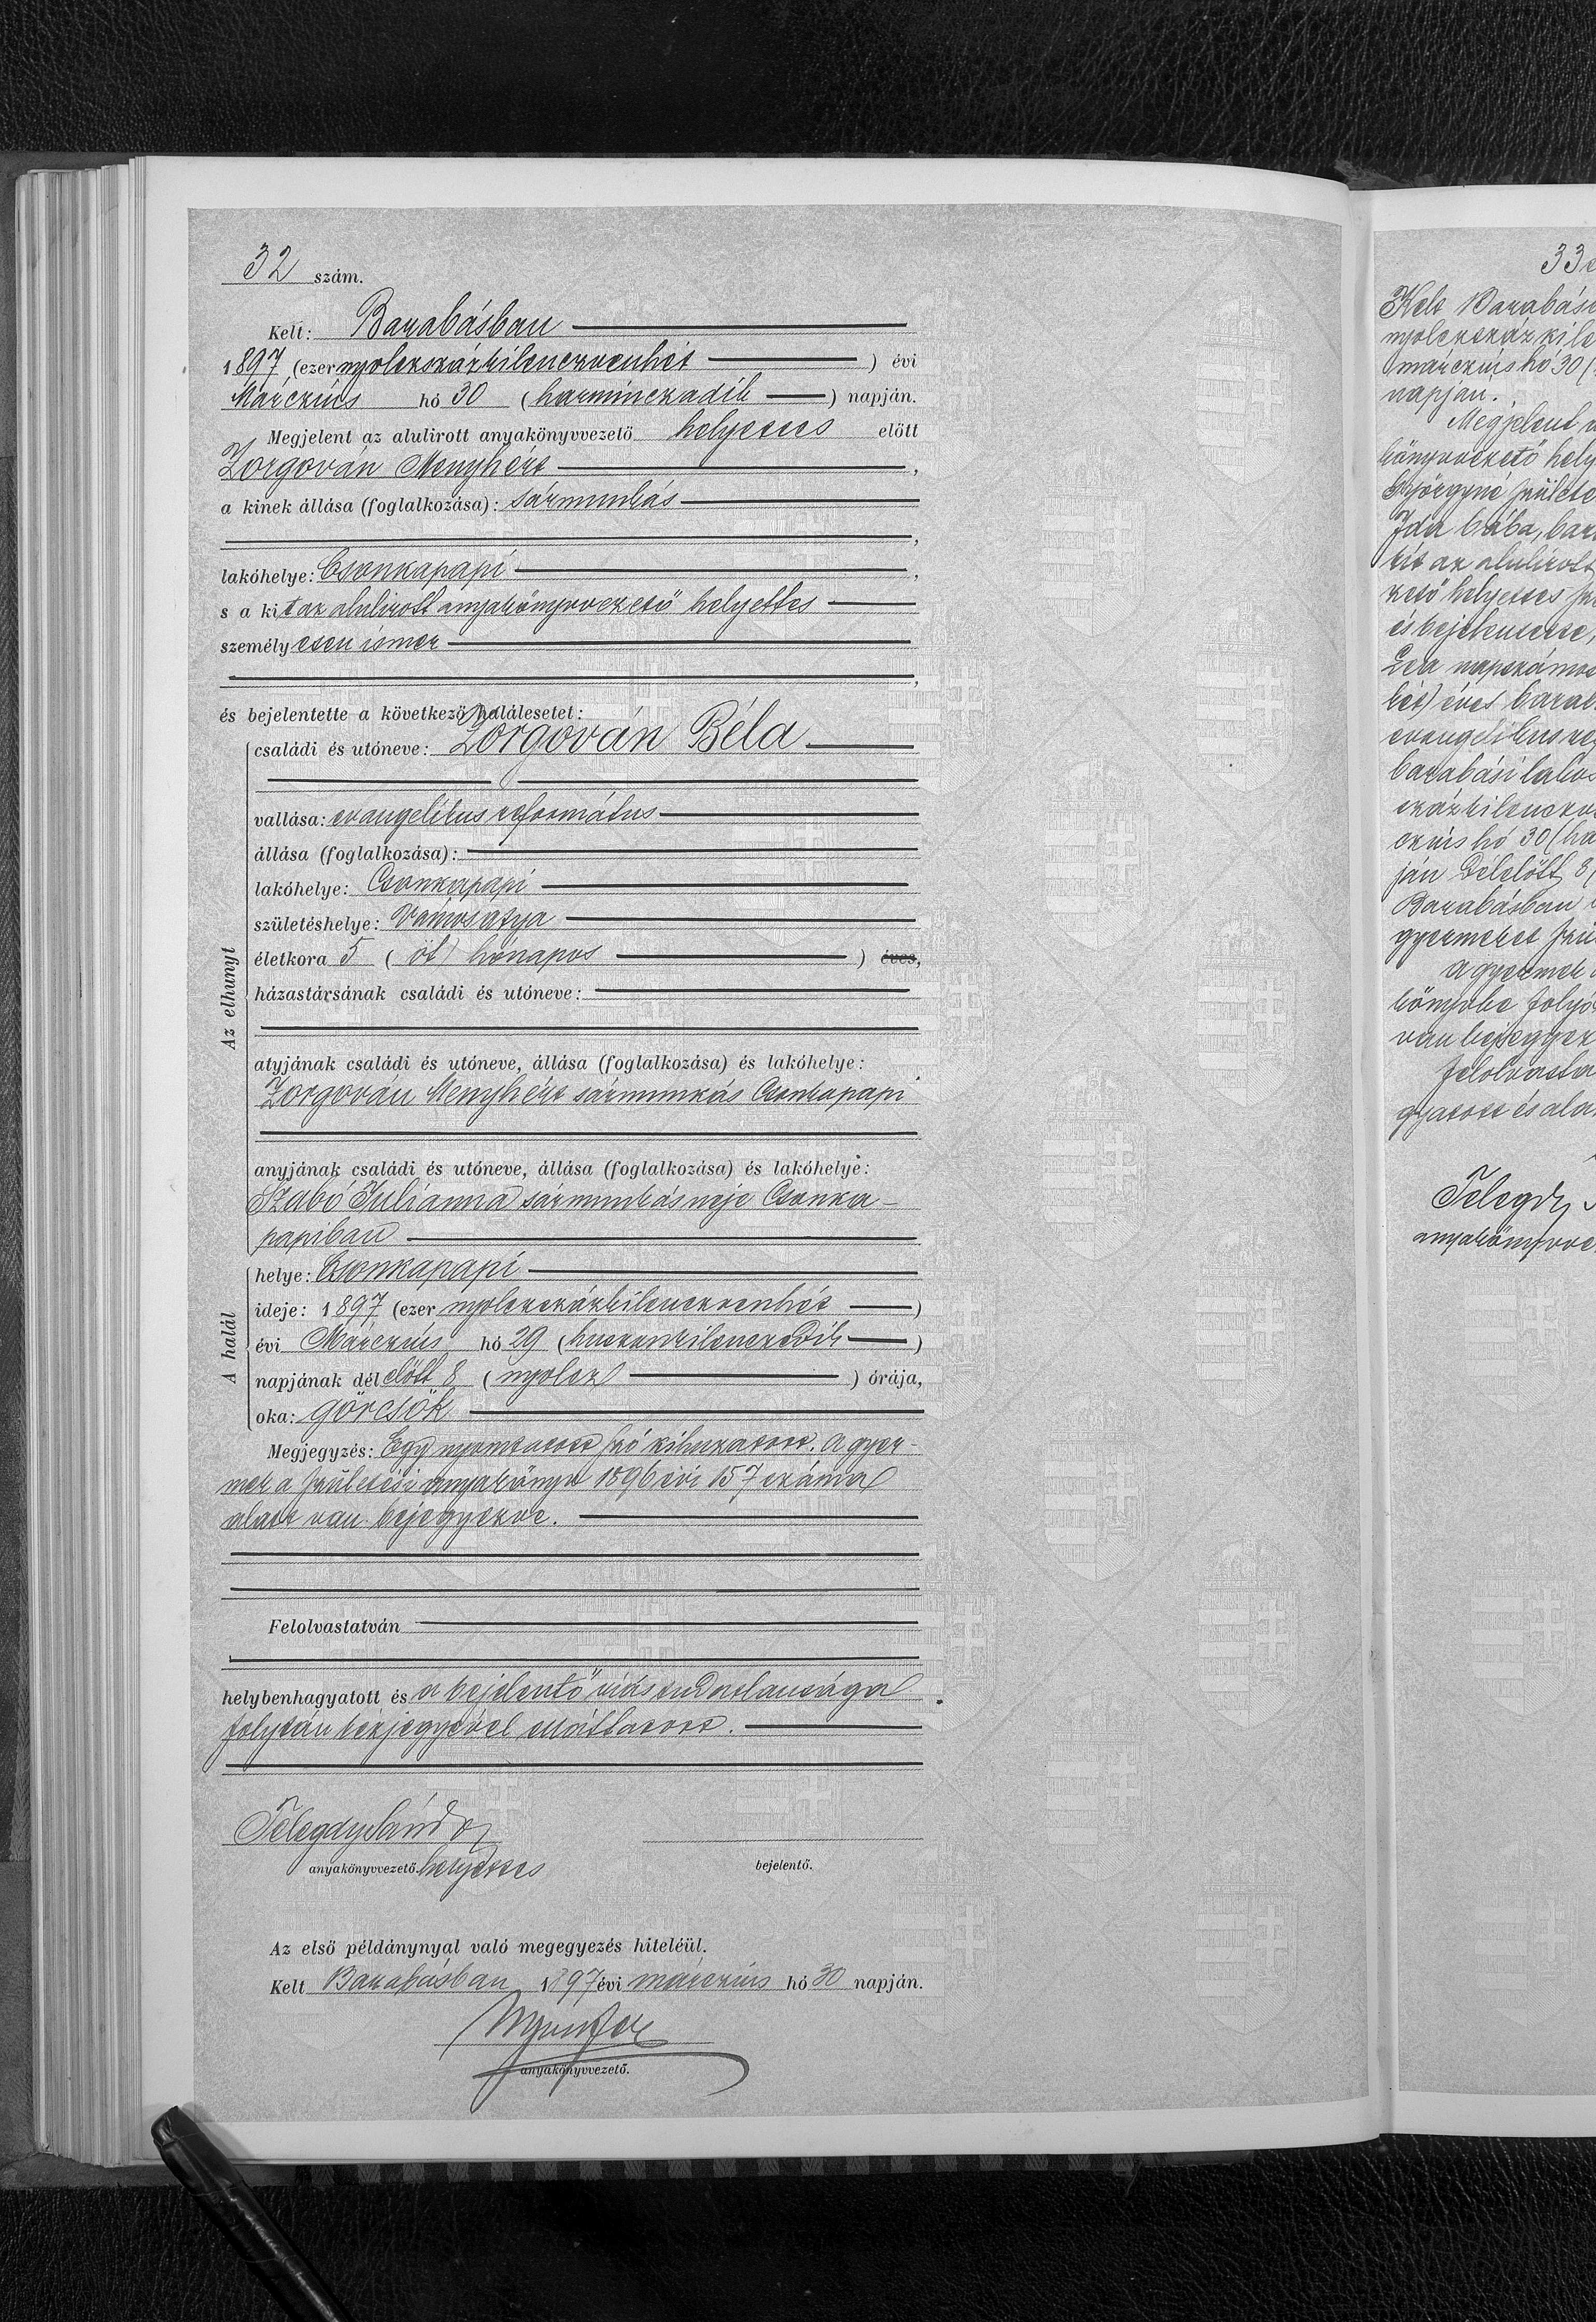 32 szám.
Kelt: Barabásban
1897 (ezer nyolczszázkilenczvenhét) évi
Márczius hó 30 (harminczadik) napján.
Megjelent az alulirott anyakönyvvezető helyettes előtt
Zorgován Menyhért,
a kinek állása (foglalkozása): sármunkás
,
lakóhelye: Csonkapapi,
s a kit az alulirott anyakönyvvezető helyettes
személyesen ismer
,
és bejelentette a következő halálesetet:
Az elhunyt
családi és utóneve: Zorgován Béla
vallása: evangelikus református
állása (foglalkozása):
lakóhelye: Csonkapapi
születéshelye: Vámosatya
életkora 5 (öt) hónapos ) éves,
házastársának családi és utóneve:
atyjának családi és utóneve, állása (foglalkozása) és lakóhelye:
Zorgován Menyhért sármunkás Csonkapapi
anyjának családi és utóneve, állása (foglalkozása) és lakóhelye:
Szabó Juliánna sármunkás neje Csonka-
papiban
A halál
helye: Csonkapapi
ideje: 1897 (ezer nyolczszázkilenczvenhét)
évi Márczius hó 29 (huszonkilenczedik)
napjának délelőtt 8 (nyolcz) órája,
oka: görcsök
Megjegyzés: Egy nyomtatott szó kihuzatott. A gyer-
mek a születési anyakönyv 1896 évi 157 száma
alatt van bejegyezve.
Felolvastatván
helybenhagyatott és a bejelentő irástudatlansága
folytán kézjegyével elláttatott.
Telegdy Sándor
anyakönyvvezető. helyettes
bejelentő.
Az első példánynyal való megegyezés hiteléül.
Kelt Barabásban 1897 évi márczius hó 30 napján.
anyakönyvvezető.
33
Kelt Barabás
nyolczszázkile
márczius hó 30 (
napján.
Megjelent
könyvvezető hely
Györgyné születe
Ida bába, bar
kit az alulirott
zető helyettes
és bejelentette,
napszámos
hét) éves barab
evangelikus re
barabási lakos
százkilenczve
czius hó 30 (ha
ján Délelőtt 8
Barabásban
gyermeket szü
A gyermek
könyvbe folyó
van bejegyez
Felolvasta
gyatott és alá
Telegdy
anyakönyvve